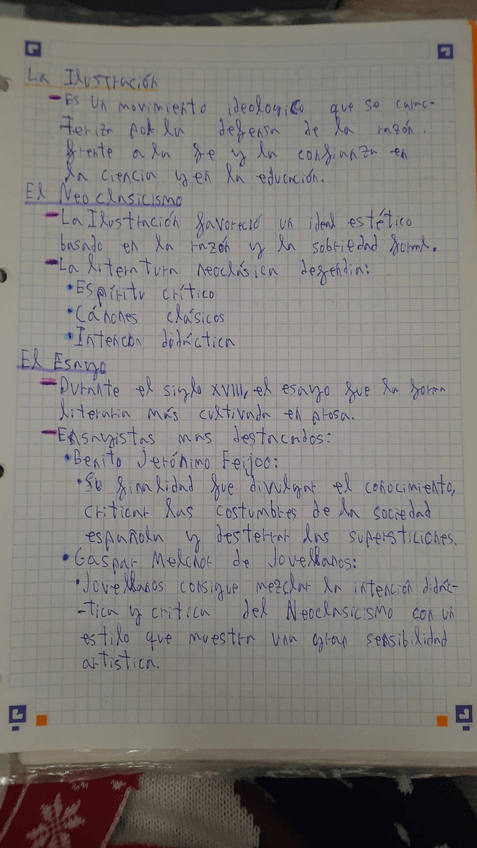 La Ilustración
- Es un movimiento ideologico que se carac-
teriza por la defensa de la razón.
frente a la fe y la confianza en
la ciencia y en la educación.
El Neoclasicismo
- La Ilustración favoreció un ideal estético
basado en la razón y la sobriedad formal.
- La literatura neoclásica defendia:
• Espíritu crítico
• Cánones clásicos
• Intención didáctica
El Esayo
- Durante el siglo XVIII, el esayo fue la forma
literaria más cultivada en prosa.
- Ensayistas mas destacados:
• Benito Jerónimo Feijoo:
• Su finalidad fue divulgar el conocimiento,
criticar las costumbres de la sociedad
española y desterrar las supersticiones.
• Gaspar Melchor de Jovellanos:
• Jovellanos consigue mezclar la intención didác-
-tica y critica del Neoclasicismo con un
estilo que muestra una gran sensibilidad
artistica.